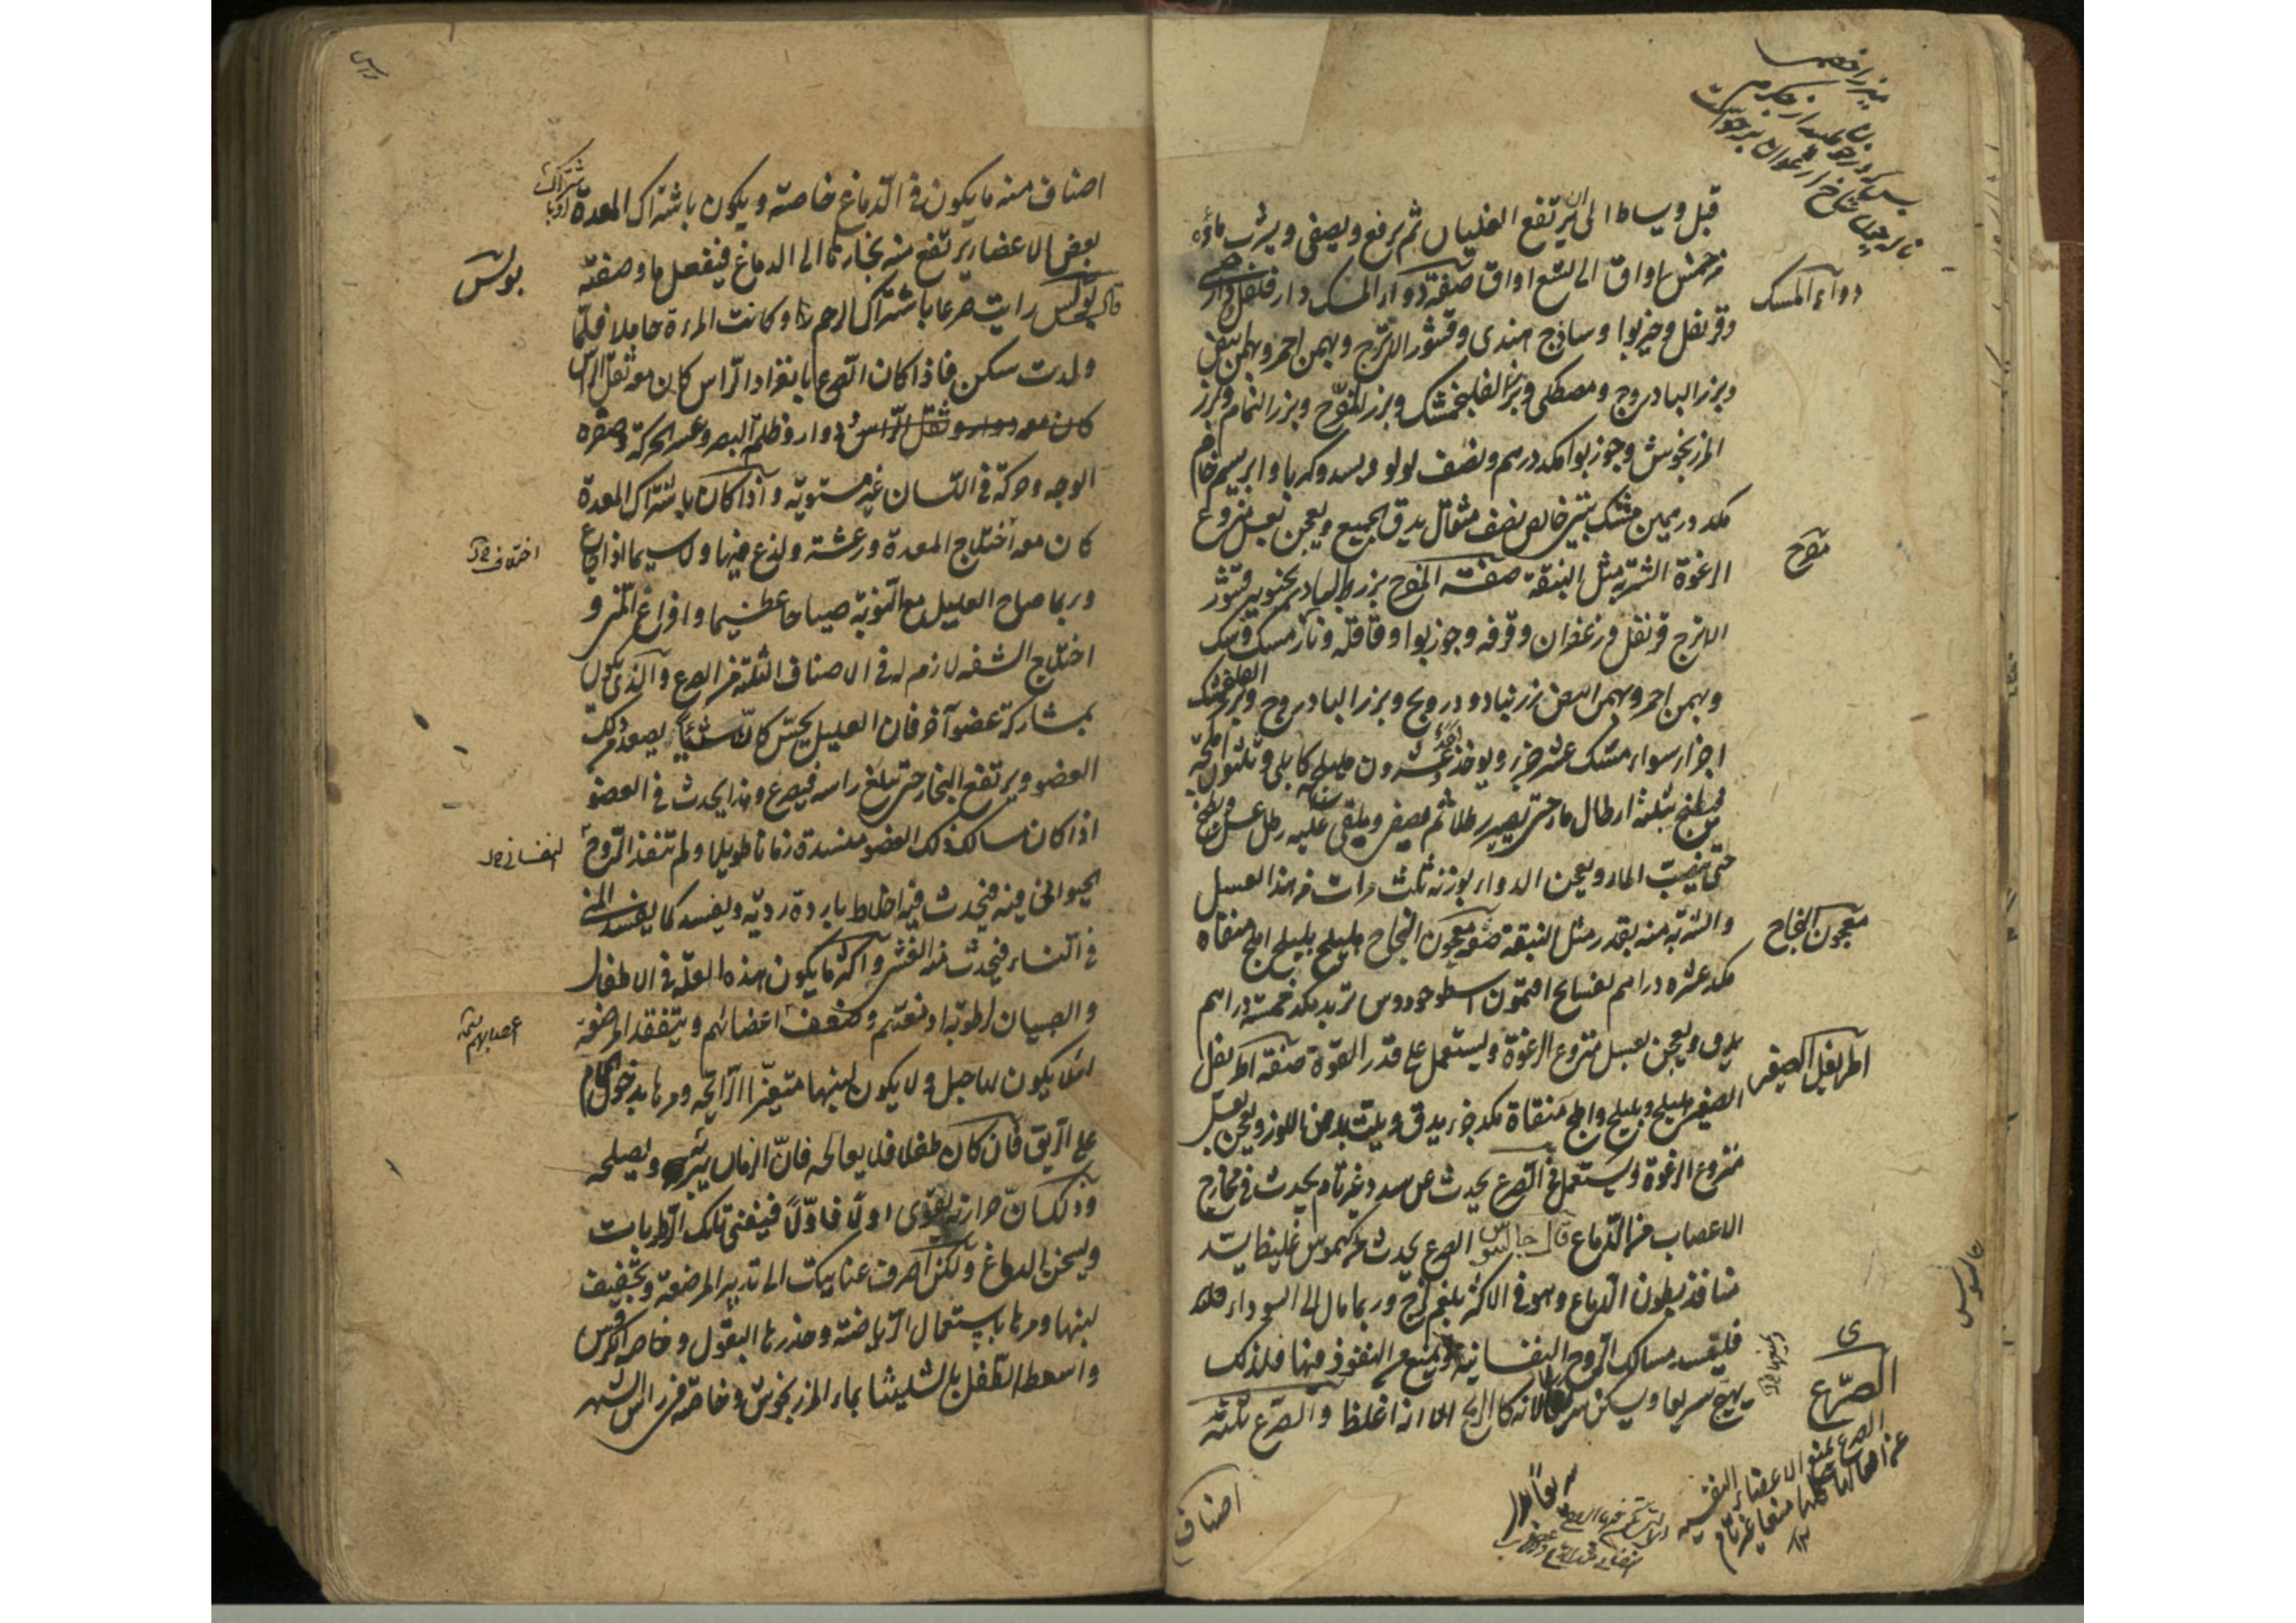 قبل ويساط الى ان يرتفع الغليان ثم يرفع ويصفى ويشرب ماؤه
من خمس اواق الى تسع اواق صفة دواء المسك دار فلفل
وقرنفل وخيربوا وساذج هندى وقشور الاترج وبهمن احمر وبهمن ابيض
وبزر البادروج ومصطكى وبزر الفلنجمشك وبزر المفرّح وبزر النمام وبزر
المرزنجوش وجوزبوا مكد درهم ونصف لولو وبسد وكهربا وابريسم خام
مكد درهمين مشك تبتى خالص نصف مثقال يدق الجميع ويعجن بعسل منزوع
الرغوة الشربة مثل البندقة صفة المفرح بزر البادرنجبويه قشور
الاترج قرنفل وزعفران وقرفه وجوزبوا وقاقله ونارمسك وسك
وبهمن احمر وبهمن ابيض زرنباد ودرونج وبزر البادروج وبزر الفلنجمشك
اجزاء سواء مشك عشر جزء ويوخذ عشرون هليلج كابلى وثلثون املجة
فيطبخ بثلثة ارطال ماء حتى يصير رطلا ثم يصفى ويلقى عليه رطل عسل ويطبخ
حتى ينضب الماء ويعجن الدواء بوزنه ثلث مرات من هذا العسل
والشربة منه بقدر مثل البندقة صفة معجون النجاح هليلج بليلج املج منقاة
مكد عشره دراهم بسفايج افتيمون اسطوخودوس تربد مكد خمسة دراهم
يدق ويعجن بعسل منزوع الرغوة ويستعمل على قدر القوة صفة اطريفل
الصغير هليلج وبليلج واملج منقاة مكد جزء يدق ويلت بدهن اللوز ويعجن بعسل
منزوع الرغوة ويستعمل فى الصرع يحدث عن سدد غير تام يحدث فى مخارج
الاعصاب من الدماغ قال جالينوس الصرع يحدث من كيموس غليظ يسد
منافذ بطون الدماغ وهو فى الاكثر بلغم لزج وربما مال الى السوداء
مسالك الروح النفسانية ويمنع من النفوذ فيها فلذلك
يهيج سريعا ويسكن سريعا لانه كالريح الا انه اغلظ والصرع ثلثة
اصناف
دواء المسك
مفرح
معجون النجاح
اطريفل الصغير
جالينوس
الصرع
الصرع يمنع الاعضاء النفسيه
عن افعالها كلها منعا غير تام
اصناف منه ما يكون فى الدماغ خاصة ويكون باشتراك المعدة
بعض الاعضاء يرتفع منه بخارها الى الدماغ فيفعل ما وصفته
قال بولس رايت صرعا باشتراك الرحم وكانت المرءة حاملا فلما
ولدت سكن فاذا كان الصرع بانفراد الراس كان معه ثقل الراس
كان معه دوار وثقل الراس دوار وظلمة البصر وعسر الحركة وصفرة
الوجه وحركة فى اللسان غير مستوية واذا كان باشتراك المعدة
كان معه اختلاج المعدة ورعشة ولذع فيها ولا سيما اذا جاع
وربما صاح العليل مع النوبة صياحا عظيما وافراغ المنى و
اختلاج الشفه لازم له فى الاصناف الثلثة من الصرع والذى يكون
بمشاركة عضو آخر فان العليل يحس كان شيئا يصعد من ذلك
العضو ويرتفع البخار حتى يبلغ راسه فيصرع وهذا يحدث فى العضو
اذا كان مسالك ذلك العضو منسدة زمانا طويلا ولم تنفذ الروح
الحيوانى فيه فيحدث فيه اخلاط باردة ردية ويفسد كما يفسد المنى
فى النساء فيحدث منه الغشى واكثر ما يكون هذه العلة فى الاطفال
والصبيان لرطوبة ادمغتهم وضعف اعضائهم ويتفقد المرضعة
لئلا يكون بها حبل ولا يكون لبنها متغير الرائحه ومرها بدخول الحمام
على الريق فان كان طفلا فلا يعالجه فان الزمان يبرئه ويصلحه
وذلك ان حرارته يقوى اولا فاولا فيفنى تلك الرطوبات
ويسخن الدماغ ولكن اصرف عنايتك الى تدبير المرضعة وتجفيف
لبنها ومرها باستعمال الرياضة وحذرها البقول وخاصة الكرفس
واسعط الطفل بالشليثا بماء المرزنجوش وخاصة فى راس الشهر
بولس